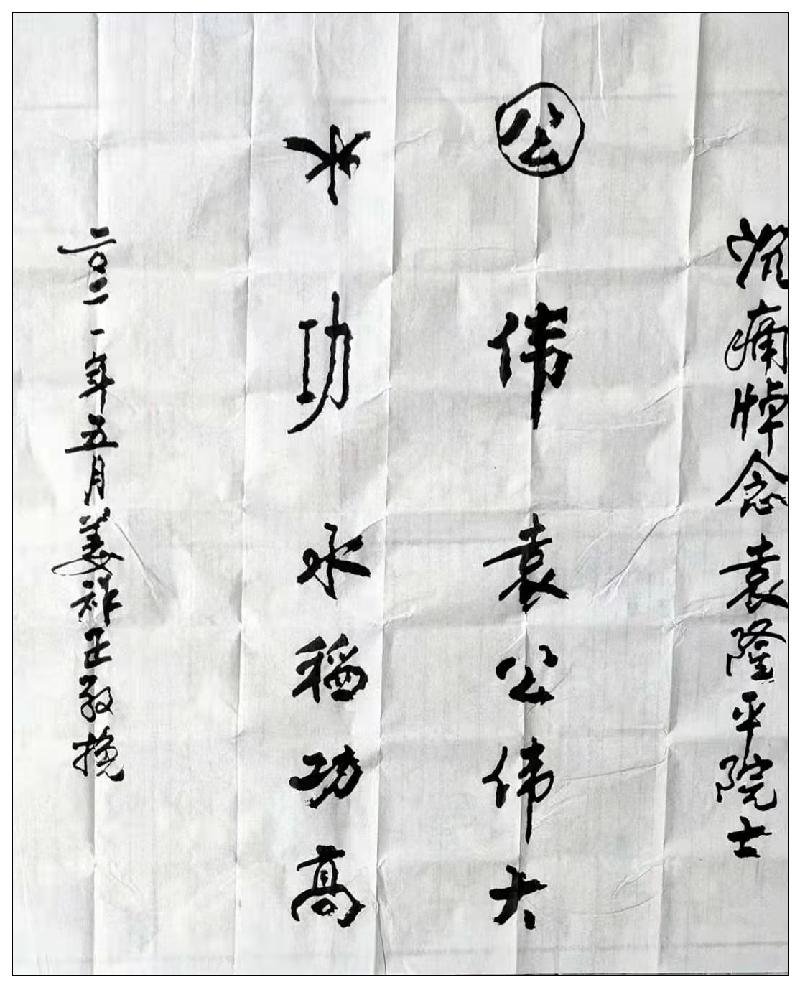 沉痛悼念袁隆平院士
公伟袁公伟大
水功水稻功高
二〇二一年五月姜祚正敬挽